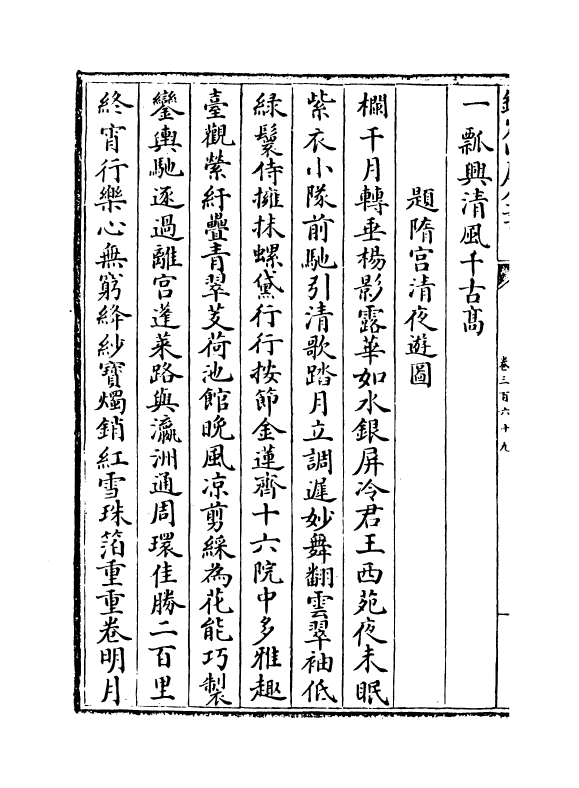 一瓢興清風千古髙
題隋宫清夜遊圖
欄干月轉垂楊影露華如水銀屏冷君王西苑夜未眠
紫衣小隊前馳引清歌踏月立調遲妙舞翻雲翠袖低
緑鬟侍擁抹螺黛行行按節金蓮齊十六院中多雅趣
臺觀縈紆疊青翠芰荷池館晚風凉剪綵為花能巧製
鑾輿馳逐過離宫蓬萊路與瀛洲通周環佳勝二百里
終宵行樂心無窮絳紗寶燭銷紅雪珠箔重重卷明月
卷三百六十九